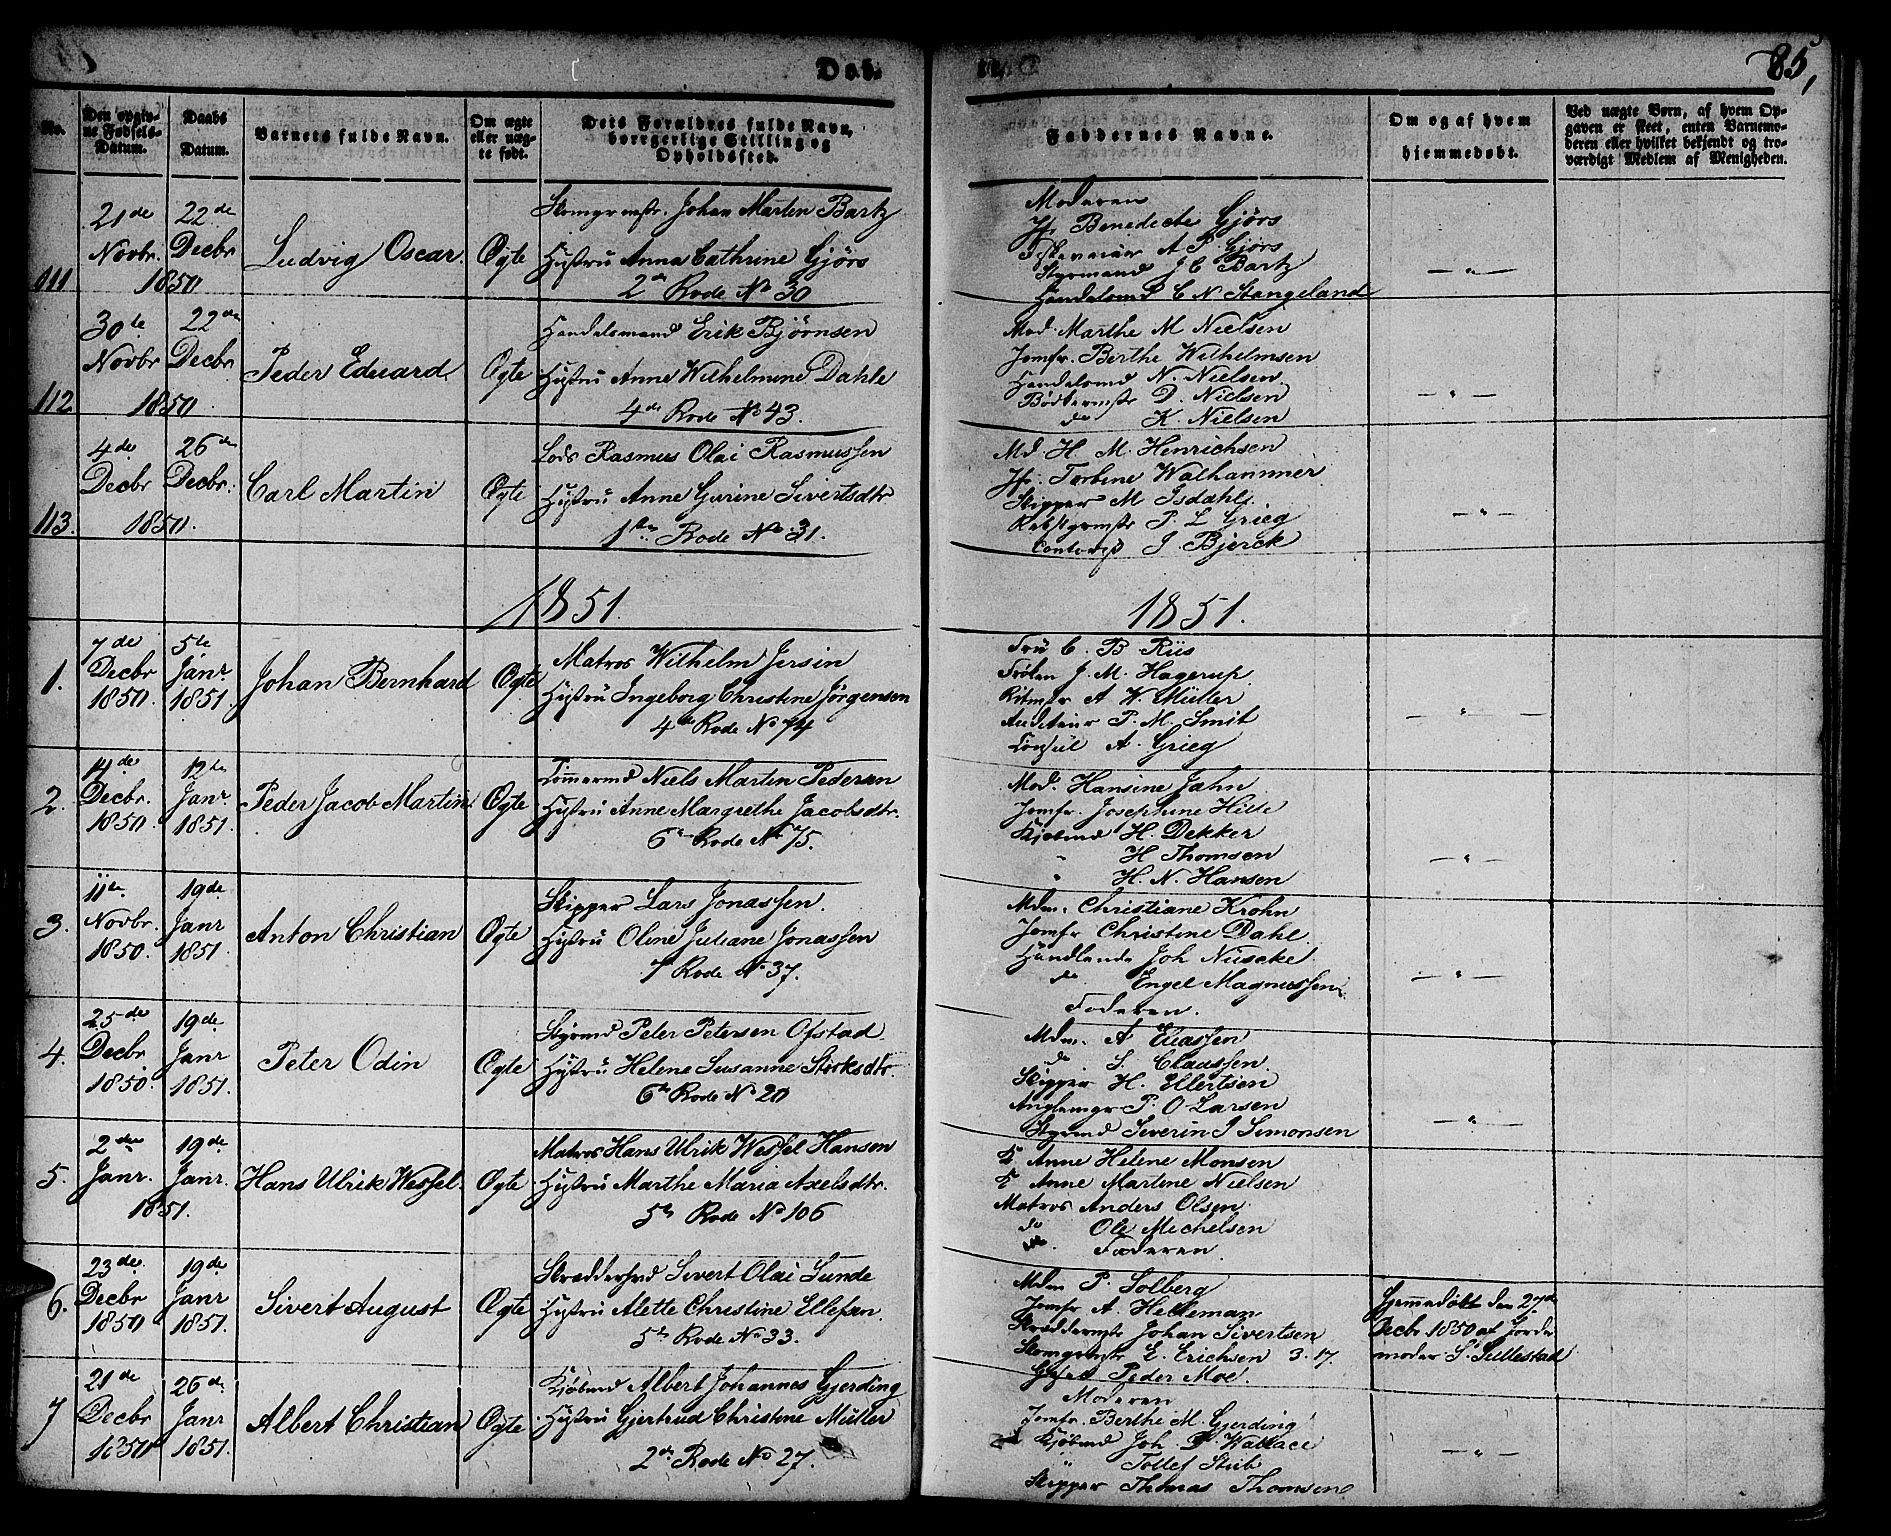 Døb.
85,
No.
Den opgiv-
ne Fødsels-
Datum.
Daabs
Datum.
Barnets fulde Navn.
Om ægte
eller uæg-
te født.
Dets Forældres fulde Navn,
borgerlige Stilling og
Opholdssted.
Faddernes Navne.
Om og af hvem
hjemmedøbt.
Ved uægte Børn, af hvem Op-
gaven er skeet, enten Barnemo-
deren eller hvilket bekjendt og tro-
værdigt Medlem af Menigheden.
111
21de
Novbr.
22de
Decbr
1850
Ludvig Oscar.
Ægte
Johan Marten Bartz
Hustru Anna Cathrine Gjörs
2de Rode No 30
Moderen
Jfr Benedicte Gjörs
A P. Gjörs
Styrmand J C Bartz
Handelsmd C N Stangeland
— " —
112
30te
Novbr
22de
Decbr
1850
Peder Eduard
Ægte
Handelsmand Erik Bjørnsen
Hustru Anne Wilhelmine Dahle
4de Rode No 43.
Mad. Marthe M Nielsen
Jomfr. Berthe Wilhelmsen
Handelsmd N. Nielsen
Bødkermstr D. Nielsen
do K. Nielsen
— " —
113.
4de
Decbr
26de
Decbr.
1850.
Carl Martin
Ægte
Lods Rasmus Olai Rasmussen
Hustru Anne Gurine Sivertsdtr
1ste Rode No 31.
Md H. M. Henrichsen
Jfr. Torbine Walhammer
Skipper M Isdahl
P. L Grieg
J Bjerck
— " —
1851.
1851.
1.
7de
Decbr
1850.
5te
Janr
1851.
Johan Bernhard
Ægte
Matros Wilhelm Jersin
Hustru Ingeborg Christine Jörgensen
4de Rode No 74
Fru C. B Riis
Frøken J. M. Hagerup.
Ritmstr A W. Müller
Auditeur P. M. Smit
Consul A. Grieg
— " —
2.
14de
Decbr.
1850.
12te
Janr.
1851.
Peder Jacob Martin
Ægte
Tömmermd Niels Martin Pedersen
Hustru Anne Margrethe Jacobsdtr.
6te Rode No 75.
Mad. Hansine Jahn
Jomfr. Josephine Hille
Kjöbmd H. Dekker
" H Thomsen
" H. N. Hansen
— " —
3.
11te
Novbr.
1850.
19de
Janr
1851.
Anton Christian
Ægte
Skipper Lars Jonassen
Hustru Oline Juliane Jonassen
7 Rode No 37.
Mdm. Christiane Krohn
Jomfr Christine Dahl
Handlende Joh Nuscke
do Engel Magnussen
Faderen.
— " —
4.
25de
Decbr
1850.
19de
Janr
1851.
Peter Odin
Ægte
Styrmd Peter Petersen Ofstad
Hustru Helene Susanne Störksdtr.
6te Rode No 20
Mdm. A Eliassen
do S. Claassen
Skipper H. Ellertsen
P. O Larsen
Styrmd Severin J Simonsen
— " —
5.
2den
Janr.
19de
Janr.
1851.
Hans Ulrik Wessel.
Ægte
Matros Hans Ulrik Wessel Hansen
Hustru Marthe Maria Axelsdtr.
5te Rode No 106
K Anne Helene Monsen
K Anne Martine Nielsen
Matros Anders Olsen
do Ole Michelsen
Faderen.
6.
23de
Decbr
1850
19de
Janr
1851.
Sivert August
Ægte
Sivert Olai Sunde
Hustru Alette Christine Ellefsn.
5te Rode No 33.
Mdm P. Solberg
Jomfr A. Helleman
Skreddermstr Johan Sivertsen
E. Erichsen 3.17.
Peder Moe.
Hjemmedöbt den 27de
Decbr 1850 af Jorde
moder S. Sillestad
7
21de
Decbr
1850
26de
Janr
1851.
Albert Christian
Ægte
Kjöbmd Albert Johannes Gjerding
Hustru Gjertrud Christine Müller
2den Rode No 27.
Moderen
Jomfr. Berthe M. Gjerding
Kjöbmd Joh P. Wallace
" Tollef Stub
Skipper Thomas Thomsen
— " —